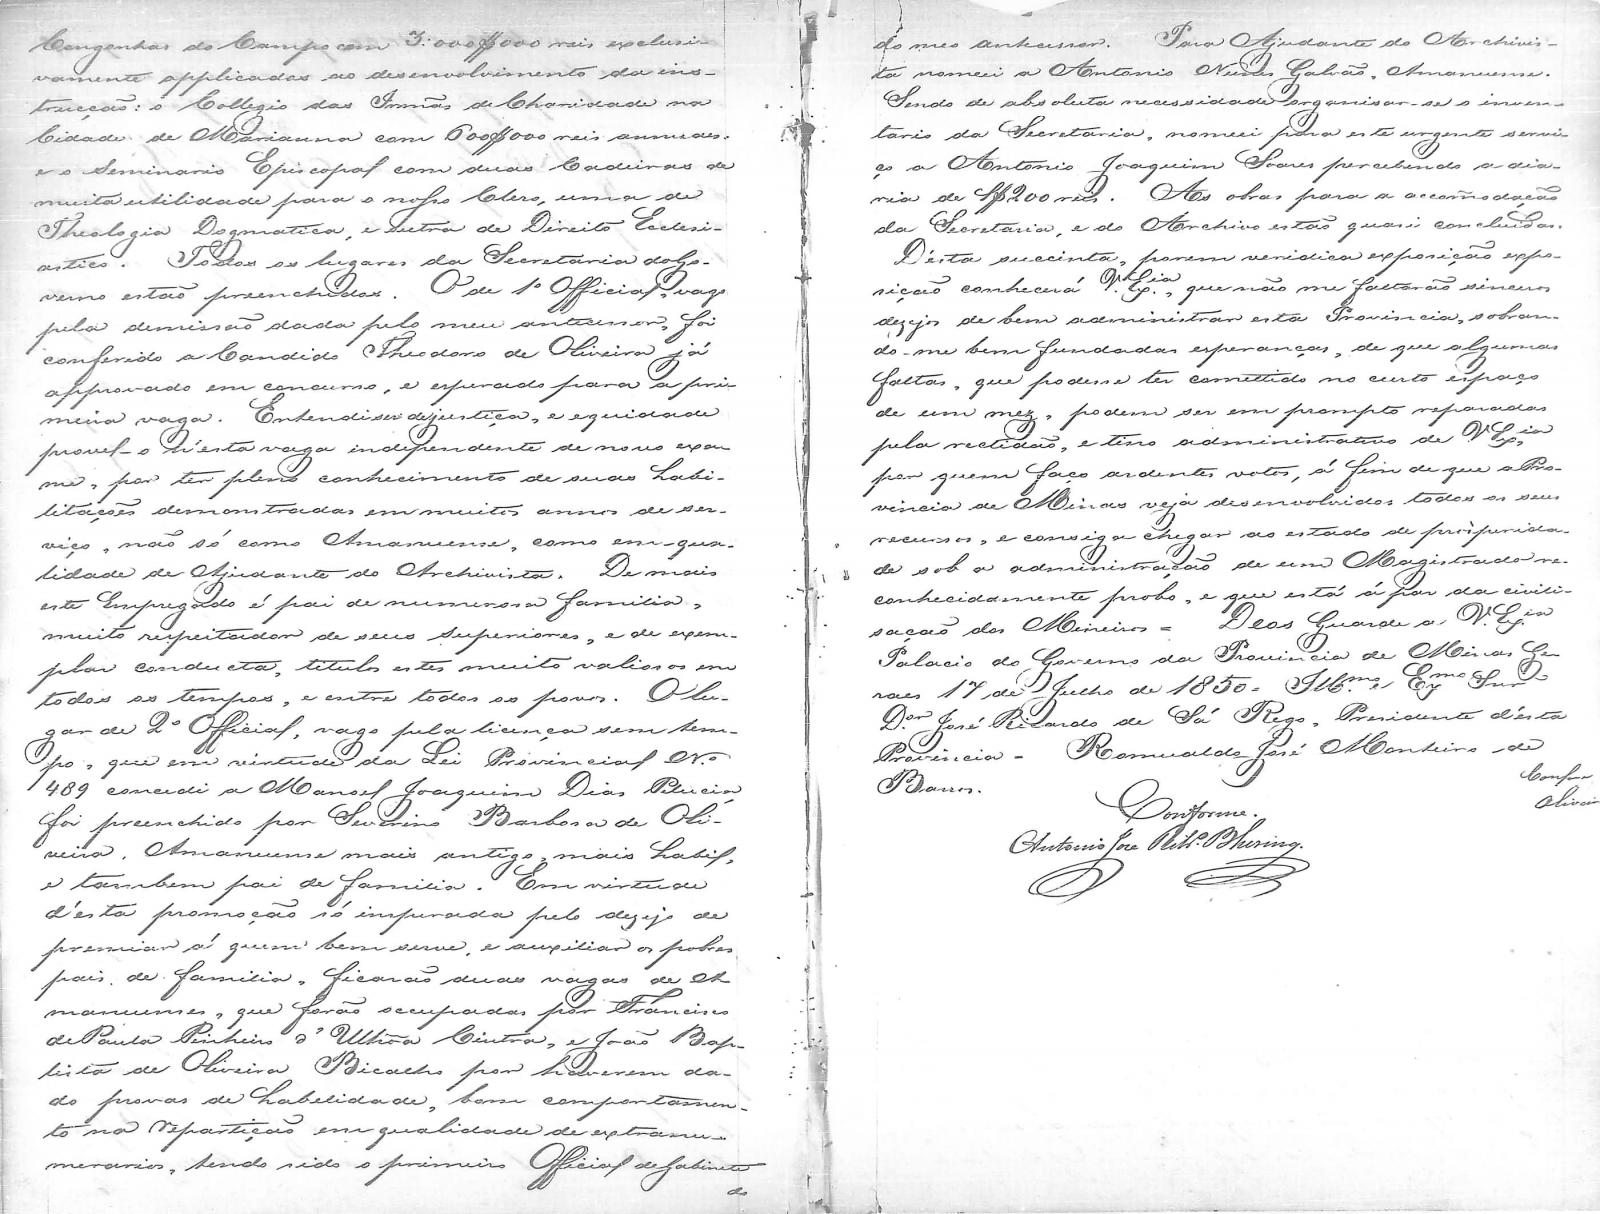 Congonhas do Campo com 3:000$000 reis exclusi-
vamente applicados ao desenvolvimento da ins-
trucção: o Collegio das Irmãs de Charidade na
Cidade de Marianna com 600$000 reis annuaes.
e o Seminario Episcopal com duas Cadeiras de
muita utilidade para o nosso Clero, uma de
Theologia Dogmatica, e outra de Direito Ecclesi-
astico. Todos os lugares da Secretaria do Go-
verno estão preenchidos. O de 1º Official, vago
pela demissão dada pelo meu antecessor, foi
conferido a Candido Theodoro de Oliveira já
approvado em concurso, e esperado para a pri-
meira vaga. Entendi ser de justiça, e equidade
provel-o n'esta vaga independente de novo exa-
me, por ter pleno conhecimento de suas habi-
litações demonstradas em muitos annos de ser-
viço, não só como Amanuense, como em qua-
lidade de Ajudante do Archivista. De mais
este Empregado é pai de numerosa familia,
muito respeitador de seus superiores, e de exem-
plar conducta, titulos estes muito valiosos em
todos os tempos, e entre todos os povos. O lu-
gar de 2º Official, vago pela licença sem tem-
po, que em virtude da Lei Provincial Nº
489 concedi a Manoel Joaquim Dias Pelucia,
foi preenchido por Severino Barbosa de Oli-
veira, Amanuense mais antigo, mais habil,
e tambem pai de familia. Em virtude
d'esta promoção só inspirada pelo dezejo de
premiar á quem bem serve, e auxiliar os pobres
pais de familia, ficarão duas vagas de A-
manuenses, que forão occupadas por Francisco
de Paula Pinheiro d'Ulhôa Cintra, e João Bap-
tista de Oliveira Bicalho por haverem da-
do provas de habelidade, bom comportamen-
to na Repartição em qualidade de extranu-
merarios, tendo sido o primeiro Official de Gabinete
do
do meo antecessor. Para Ajudante do Archivis-
ta nomeei a Antonio Nunes Galvão, Amanuense.
Sendo de absoluta necessidade organisar-se o inven-
tario da Secretaria, nomeei para este urgente servi-
ço a Antonio Joaquim Soares percebendo a dia-
ria de 1$200 reis. As obras para a accommodação
da Secretaria, e do Archivo estão quasi concluidas.
D'esta succinta, porem veridica exposição expo-
sição conhecerá V. Exia., que não me faltarão sinceros
dezejos de bem administrar esta Provincia, sobran-
do-me bem fundadas esperanças, de que algumas
faltas, que podesse ter comettido no curto espaço
de um mez, podem ser em prompto reparadas
pela rectidão, e tino administrativo de V. Exia
por quem faço ardentes votos, á fim de que a Pro-
vincia de Minas veja desenvolvidos todos os seus
recursos, e consiga chegar ao estado de prosperida-
de sob a administração de um Magistrado re-
conhecidamente probo, e que está á par da civili-
sação dos Mineiros = Deos Guarde a V. Exia
Palacio do Governo da Provincia de Minas Ge-
raes 17 de Julho de 1850 = Illmo e Exmo Snr
Dor José Ricardo de Sá Rego, Presidente d'esta
Provincia = Romualdo José Monteiro de
Barros.
Conforme.
Antonio Jose Ribº Bhering.
Confere
Oliveir